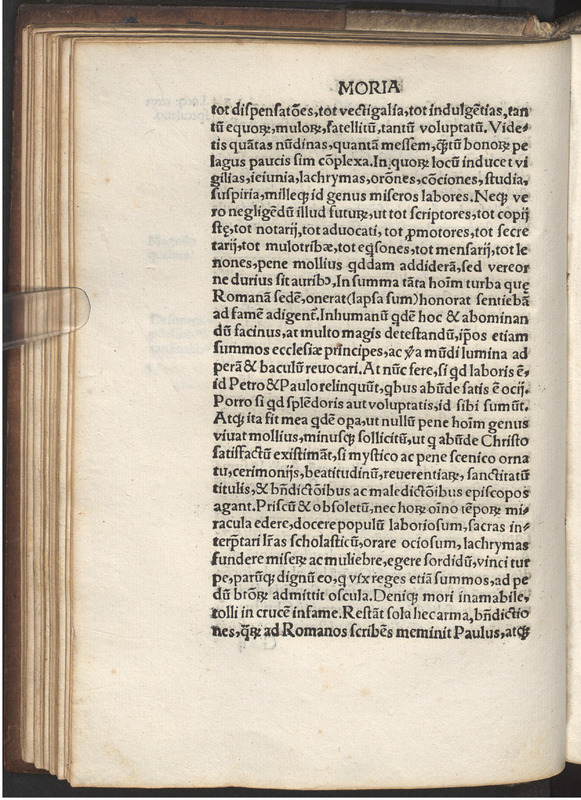 MORIA
tot dispensatōes, tot vectigalia, tot indulgētias, tan
tū equoꝝ, muloꝝ, satellitū, tantū voluptatū. Vide⸗
tis quātas nūdinas, quantā messem, q̄tū bonoꝝ pe
lagus paucis sim cōplexa. In quoꝝ locū inducet vi
gilias, ieiunia, lachrymas, orōnes, cōciones, studia,
suspiria, milleqꝫ id genus miseros labores. Neqꝫ ve
ro negligēdū illud futuꝝ, ut tot scriptores, tot copij
stę, tot notarij, tot aduocati, tot ꝓmotores, tot secre
tarij, tot mulotribæ, tot eqsones, tot mensarij, tot le
nones, pene mollius qddam addiderā, sed vereor
ne durius sit auribꝰ, In summa tāta hoīm turba quę
Romanā sedē, onerat (lapsa sum) honorat sentiebā
ad famē adigent̄. Inhumanū qdē hoc & abominan
dū facinus, at multo magis detestandū, ip̄os etiam
summos ecclesiæ principes, ac v̄a mūdi lumina ad
perā & baculū reuocari. At nūc fere, si qd laboris ē,
id Petro & Paulo relinquūt, qbus abūde satis ē ocij.
Porro si qd splēdoris aut voluptatis, id sibi sumūt.
Atqꝫ ita fit mea qdē opa, ut nullū pene hoīm genus
viuat mollius, minusqꝫ sollicitū, ut q abūde Christo
satisfactū existimāt, si mystico ac pene scenico orna
tu, cerimonijs, beatitudinū, reuerentiaꝝ, sanctitatū
titulis, & bn̄dictōibus ac maledictōibus episcopos
agant. Priscū & obsoletū, nec hoꝝ oīno tēpoꝝ mi⸗
racula edere, docere populū laboriosum, sacras in⸗
terp̄tari lr̄as scholasticū, orare ociosum, lachrymas
fundere miseꝝ ac muliebre, egere sordidū, vinci tur
pe, parūqꝫ dignū eo, q vix reges etiā summos, ad pe
dū btōꝝ admittit oscula. Deniqꝫ mori inamabile,
tolli in crucē infame. Restāt sola hec arma, bn̄dictio
nes, q̄ꝝ ad Romanos scribēs meminit Paulus, atqꝫ